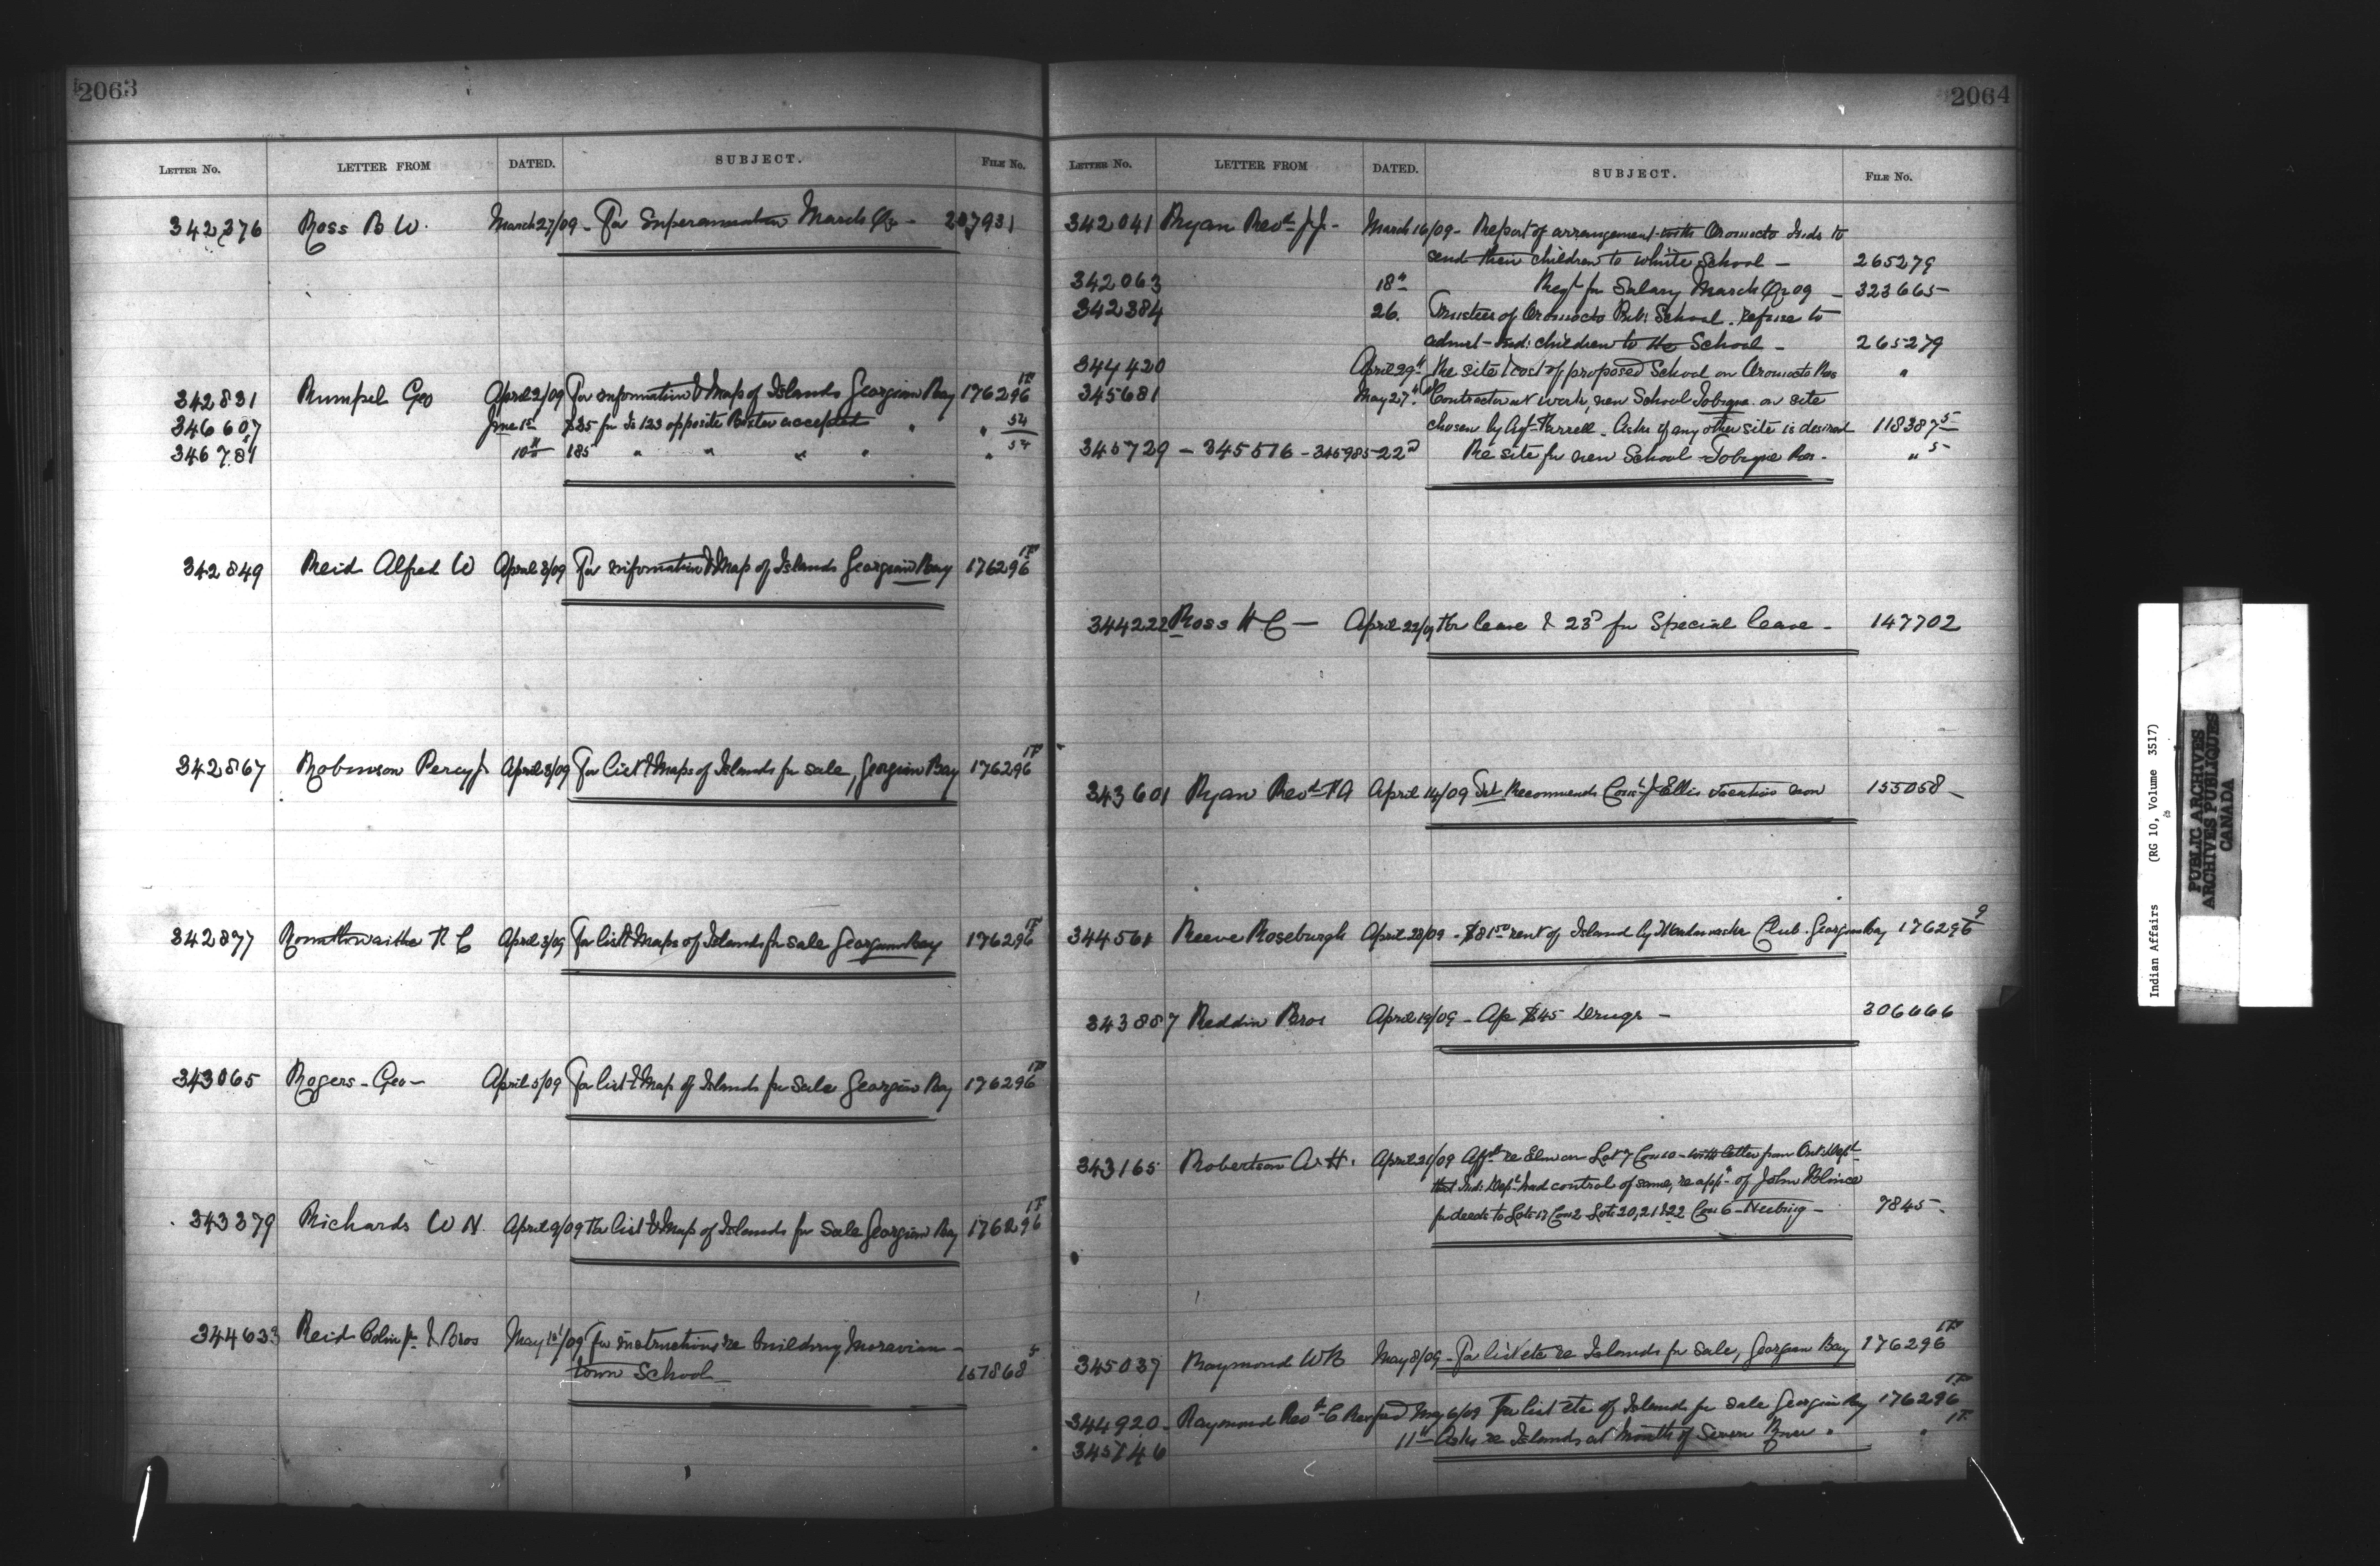 2063
LETTER No. LETTER FROM DATED. SUBJECT. FILE No.
342376 Ross B W. March 27/09 - For Superannuation March Qr - 207931
342831 Rumpel Geo April 2/09 For information & Map of Islands Georgian Bay 176296 1F
346607 June 1st $25 for Is 123 opposite accepted " " 54
346781 10th 185 " " " " " 54
342849 Reid Alfred W April 3/09 For information & Map of Islands Georgian Bay 176296 1F
342867 Robinson Percy J April 3/09 For list & Maps of Islands for sale, Georgian Bay 176296 1F
342877 R C April 3/09 For list & Maps of Islands for sale Georgian Bay 176296 1F
343065 Rogers - Geo - April 5/09 For list & Map of Islands for sale Georgian Bay 176296 1F
343379 Richards W N. April 9/09 For list & Map of Islands for sale Georgian Bay 176296 1F
344633 Reid Colin Jr. & Bros May 1st/09 For instructions re building Moravian -
town School - 157868 5
2064
LETTER No. LETTER FROM DATED. SUBJECT. FILE No.
342041 Ryan Revd J.J. - March 16/09 - Report of arrangement with Oromocto Inds to
send their children to white School - 265279
342063 18th Reqt for Salary March Qr 09 - 323665
342384 26. Trustees of Oromocto Pub: School. refuse to
admit Ind: children to the School - 265279
344420 April 29th Re site & cost of proposed School on Oromocto Res "
345681 May 27th Contractor at work, new School Tobique. on site
chosen by Agt Farrell. Asks if any other site is desired 118387 5
345729 - 345516 - 345985 - 22d Re site for new School Tobique Res. " 5
344222 Ross H C - April 22/09 For lease & 23d for Special lease - 147702
343601 Ryan Revd F A April 14/09 Recommends J Ellis 155058 -
344561 Reeve Roseburgh April 28/09 - $81.50 rent of Island by Club. Georgian Bay 176296 9
343887 Reddin Bros April 19/09 - Ac $45 Drugs - 306666
343165 Robertson A. H. April 21/09 re Lot 7 Con 10 - with letter from Ont: Dept
that Ind: Dept had control of same, re appn of John
for deeds to Lots 17 Con 2 Lots 20, 21 & 22 Con 6 - Neebing - 7845 -
345037 Raymond W B May 8/09 - For list etc re Islands for sale, Georgian Bay 176296 1F
344920 - Raymond Revd C Rexford May 6/09 For list etc of Islands for sale Georgian Bay 176296 1F
345746 11th Asks re Islands at Mouth of Severn River " " 1F
Indian Affairs (RG 10, Volume 3517)
PUBLIC ARCHIVES
ARCHIVES PUBLIQUES
CANADA